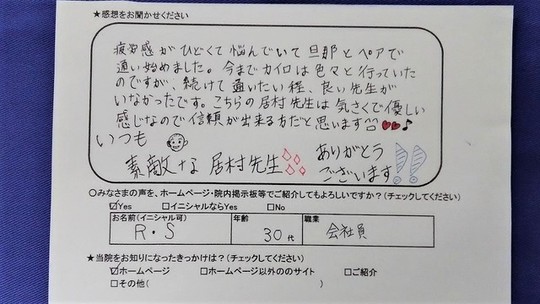 ★感想をお聞かせください
疲労感がひどくて悩んでいて旦那とペアで
通い始めました。今までカイロは色々と行っていた
のですが、続けて通いたい程、良い先生が
いなかったです。こちらの居村先生は気さくで優しい
感じなので信頼が出来る方だと思います♥♥♪
いつも
素敵な居村先生
ありがとう
ございます!!
○みなさまの声を、ホームページ・院内掲示板等でご紹介してもよろしいですか?(チェックしてください)
☑Yes □イニシャルならYes □No
お名前(イニシャル可) 年齢 職業
R・S 30代 会社員
★当院をお知りになったきっかけは?(チェックしてください)
☑ホームページ □ホームページ以外ののサイト □ご紹介
□その他( )